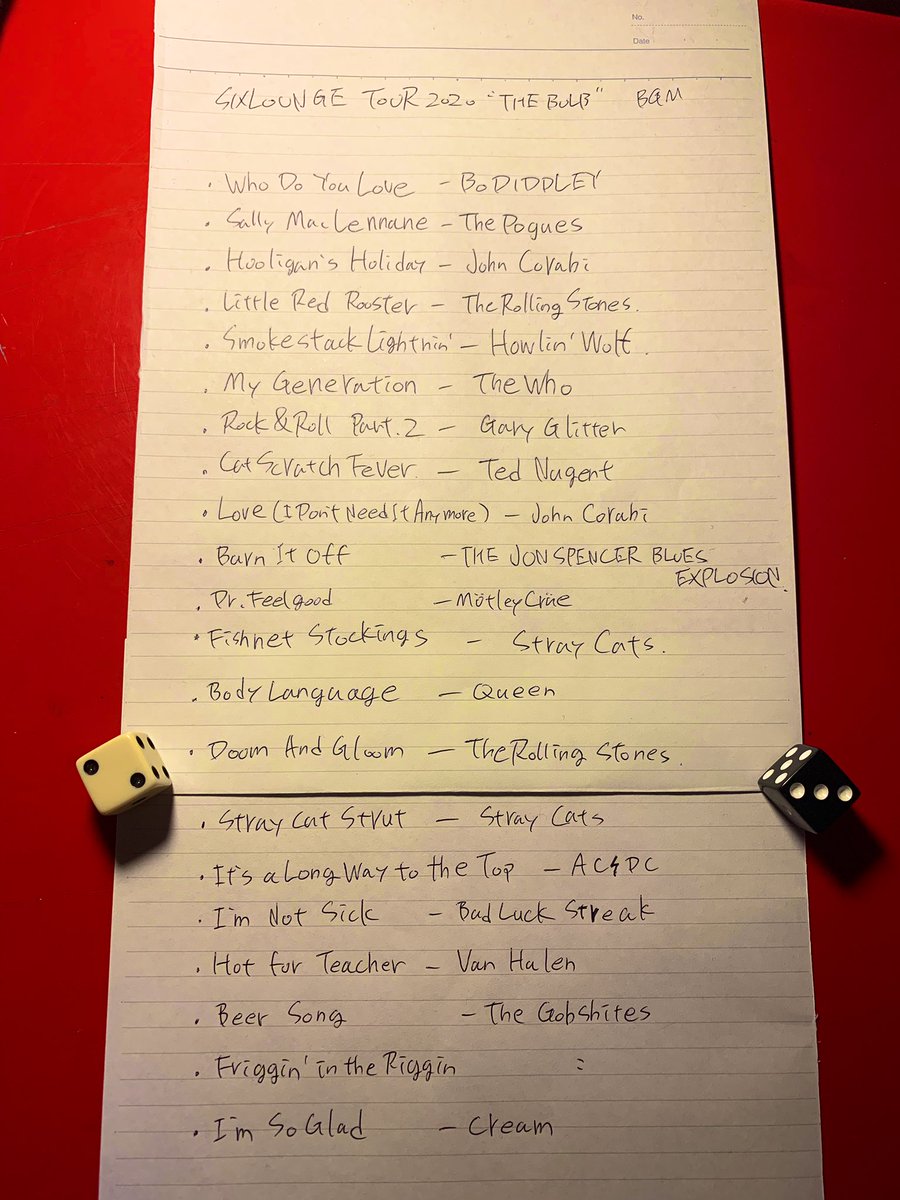 No.
Date
SIXLOUNGE TOUR 2020 "THE BULB" BGM
· Who Do You Love - BO DIDDLEY
· Sally MacLennane - The Pogues
· Hooligan's Holiday - John Corabi
· Little Red Rooster - The Rolling Stones.
· Smokestack Lightnin' - Howlin' Wolf.
· My Generation - The Who
· Rock & Roll Part.2 - Gary Glitter
· Cat Scratch Fever. - Ted Nugent
· Love (I Don't Need It Anymore) - John Corabi
· Burn It Off - THE JON SPENCER BLUES
EXPLOSION.
· Dr. Feelgood - Mötley Crüe
· Fishnet Stockings - Stray Cats.
· Body Language - Queen
· Doom And Gloom - The Rolling Stones.
· Stray Cat Strut - Stray Cats
· It's a Long Way to the Top - AC⚡DC
· I'm Not Sick - Bad Luck Streak
· Hot for Teacher - Van Halen
· Beer Song - The Gobshites
· Friggin' in the Riggin :
· I'm So Glad - Cream